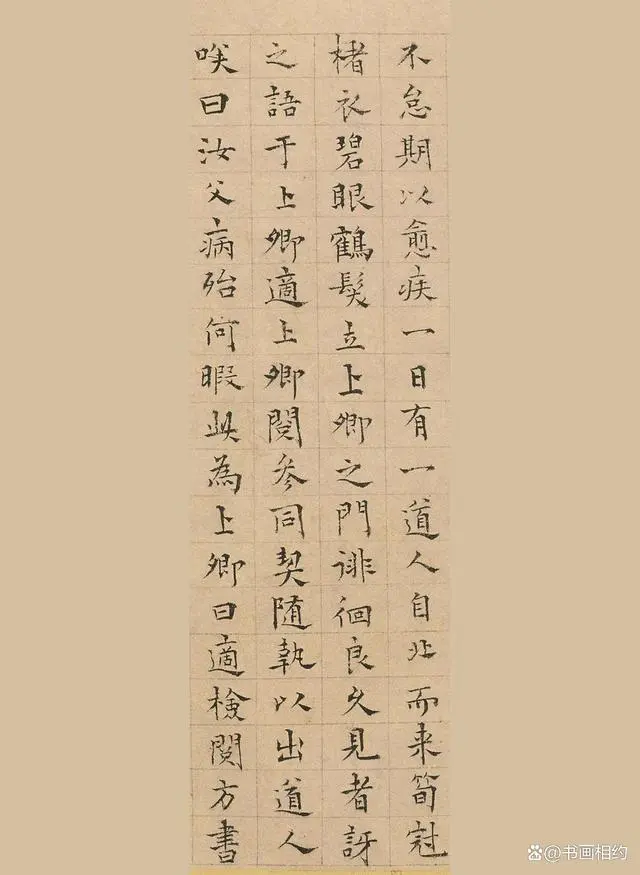 不怠期以愈疾一日有一道人自北而来筍冠
楮衣碧眼鶴髮立上卿之門誹徊良久見者訝
之語于上卿適上卿閱参同契随執以出道人
唉曰汝父病殆何暇此為上卿曰適檢閱方書
@书画相约